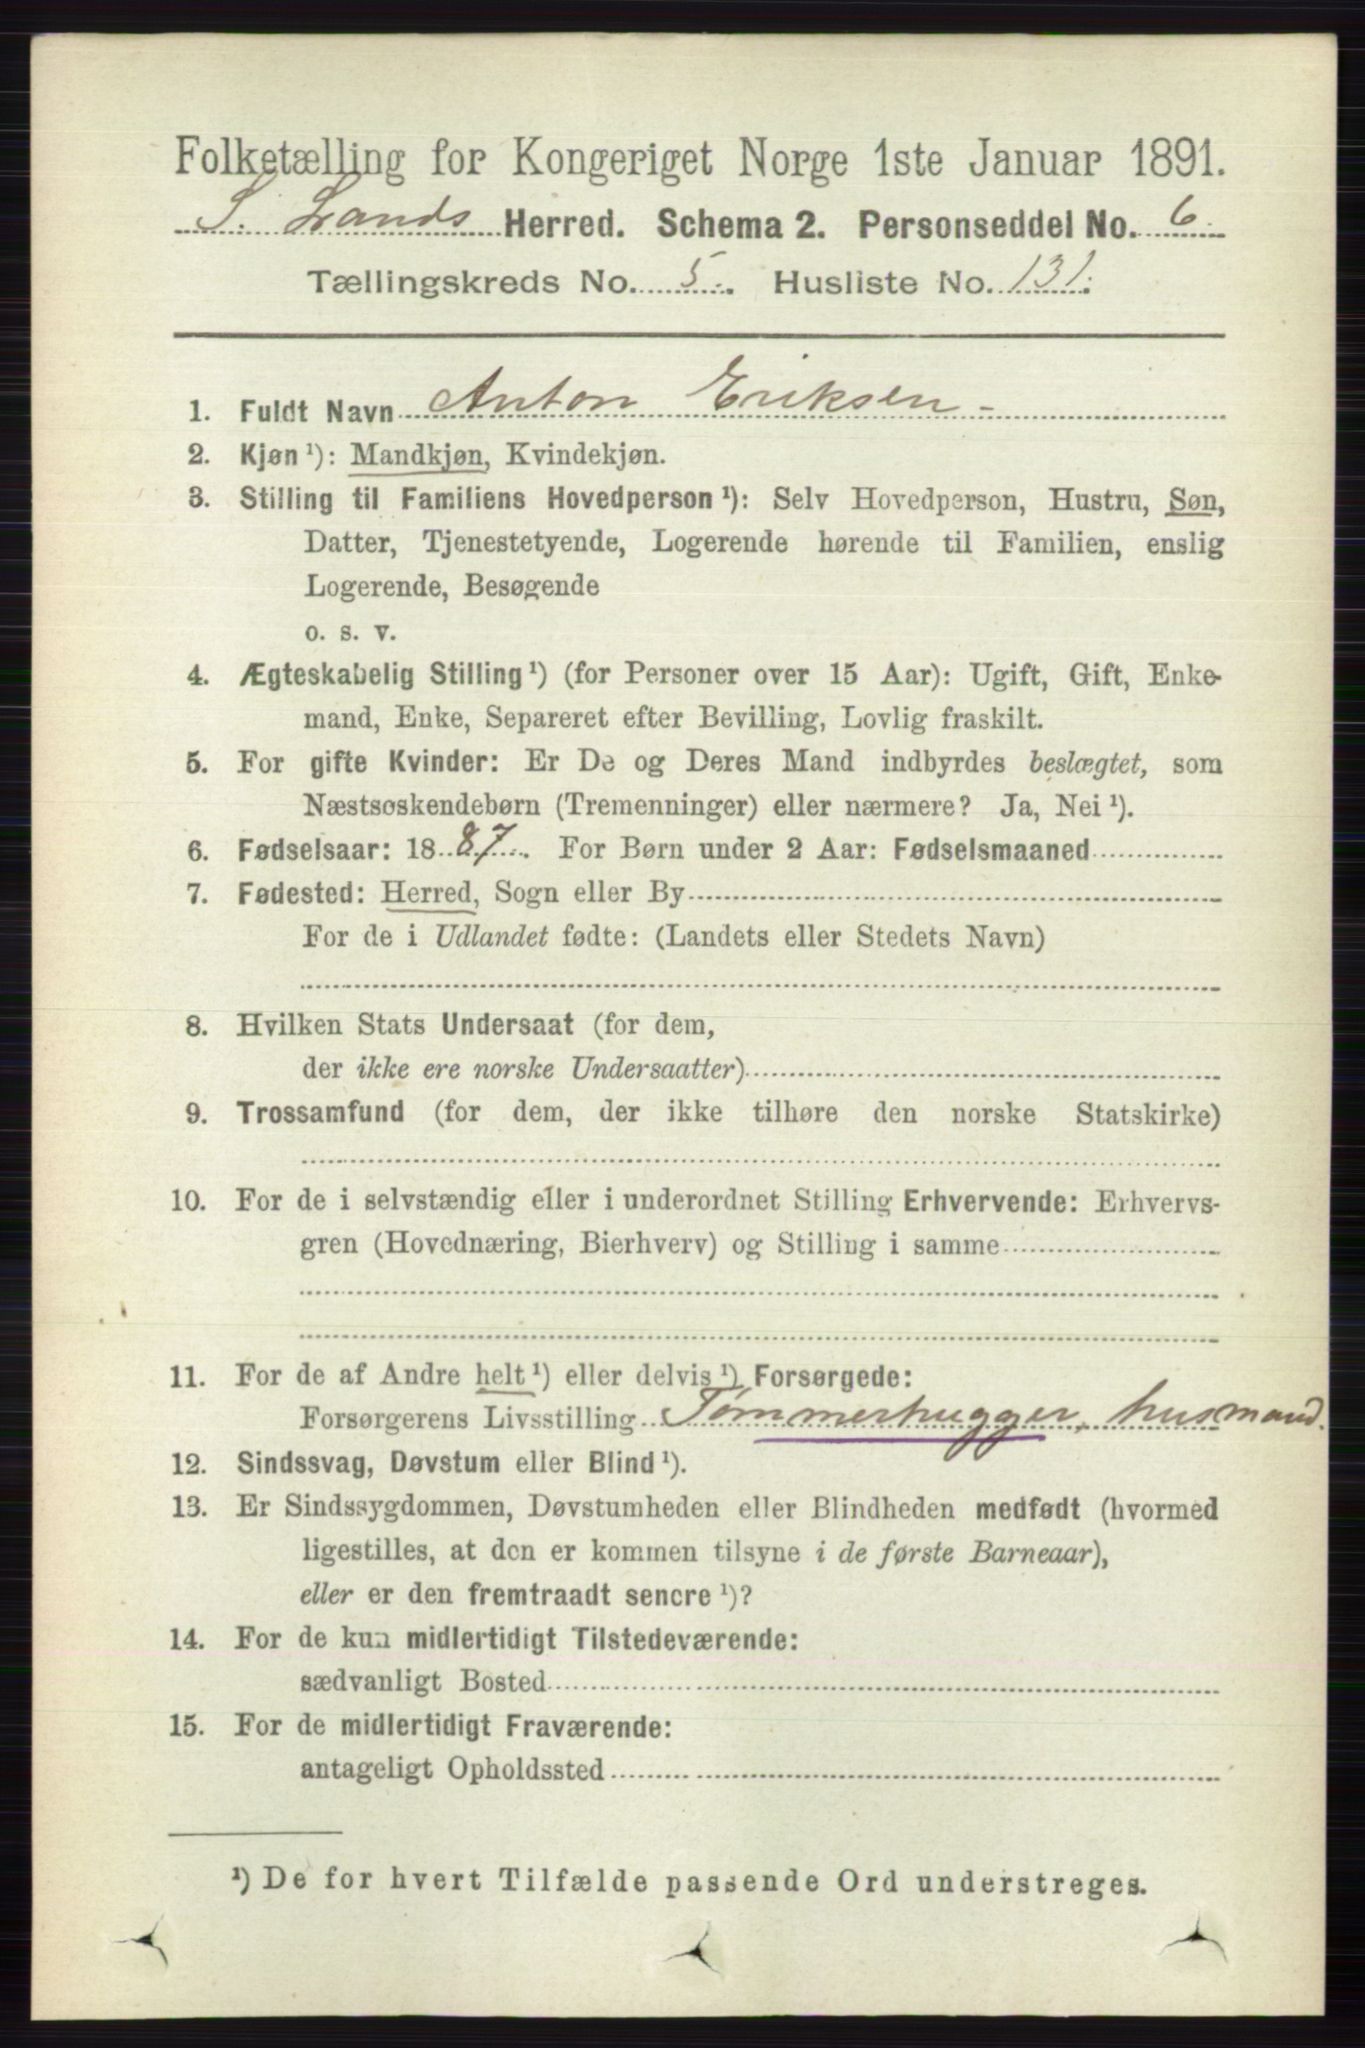 Folketælling for Kongeriget Norge 1ste Januar 1891.
S. Lands Herred. Schema 2. Personseddel No. 6
Tællingskreds No. 5. Husliste No. 131.
1. Fuldt Navn Anton Eriksen
2. Kjøn ¹): Mandkjøn, Kvindekjøn.
3. Stilling til Familiens Hovedperson ¹): Selv Hovedperson, Hustru, Søn,
Datter, Tjenestetyende, Logerende hørende til Familien, enslig
Logerende, Besøgende
o. s. v.
4. Ægteskabelig Stilling ¹) (for Personer over 15 Aar): Ugift, Gift, Enke-
mand, Enke, Separeret efter Bevilling, Lovlig fraskilt.
5. For gifte Kvinder: Er De og Deres Mand indbyrdes beslægtet, som
Næstsøskendebørn (Tremenninger) eller nærmere? Ja, Nei ¹).
6. Fødselsaar: 1887. For Børn under 2 Aar: Fødselsmaaned
7. Fødested: Herred, Sogn eller By
For de i Udlandet fødte: (Landets eller Stedets Navn)
8. Hvilken Stats Undersaat (for dem,
der ikke ere norske Undersaatter)
9. Trossamfund (for dem, der ikke tilhøre den norske Statskirke)
10. For de i selvstændig eller i underordnet Stilling Erhvervende: Erhvervs-
gren (Hovednæring, Bierhverv) og Stilling i samme
11. For de af Andre helt ¹) eller delvis ¹) Forsørgede:
Forsørgerens Livsstilling Tømmerhugger, husmand.
12. Sindssvag, Døvstum eller Blind ¹).
13. Er Sindssygdommen, Døvstumheden eller Blindheden medfødt (hvormed
ligestilles, at den er kommen tilsyne i de første Barneaar),
eller er den fremtraadt senere ¹)?
14. For de kun midlertidigt Tilstedeværende:
sædvanligt Bosted
15. For de midlertidigt Fraværende:
antageligt Opholdssted
¹) De for hvert Tilfælde passende Ord understreges.